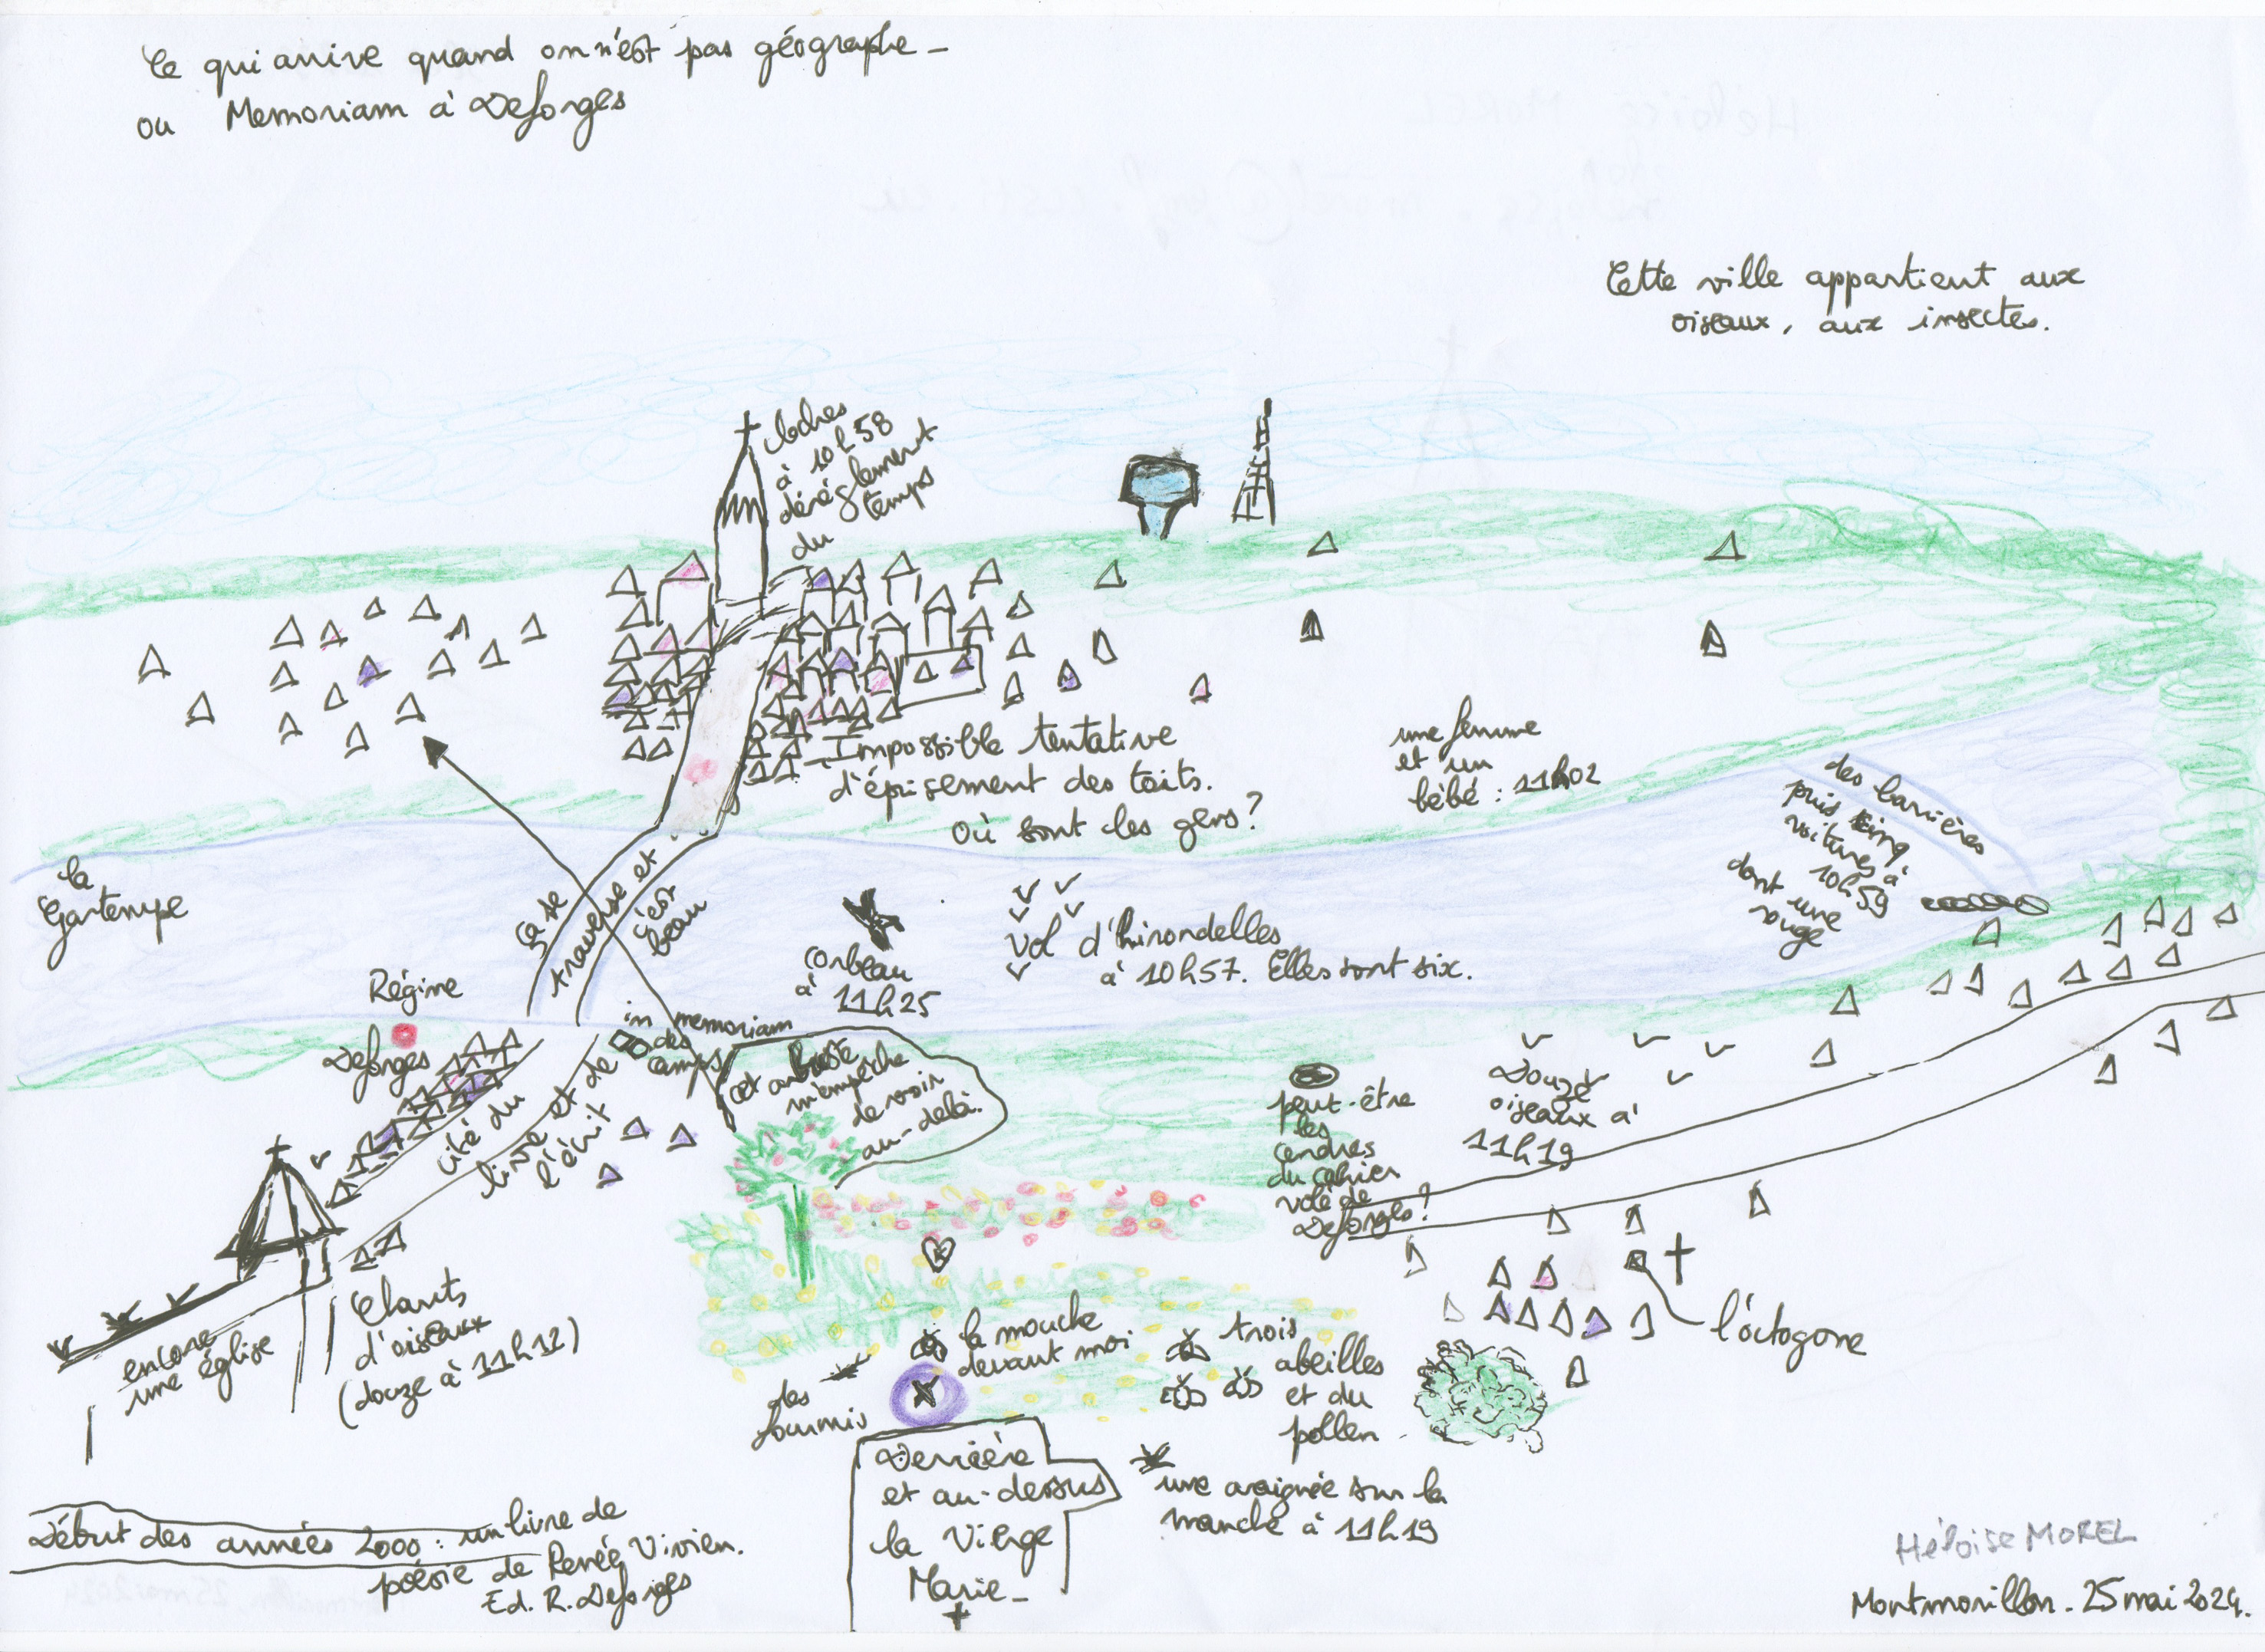 Ce qui arrive quand on n'est pas géographe -
ou Memoriam à Deforges
Cette ville appartient aux
oiseaux, aux insectes.
cloches
à 10h58
dérèglement
du temps
Impossible tentative
d'épuisement des toits.
Où sont les gens?
une femme
et un
bébé : 11h02
des barrières
puis cinq
voitures à
10h59
dont une
rouge
la
Gartempe
ça se
traverse et
c'est
beau
corbeau
à
11h25
vol d'hirondelles
à 10h57. Elles sont six.
Régine
Deforges
in memoriam
des
camps
cet arbuste
m'empêche
de voir
au-delà.
peut-être
les
cendres
du cahier
volé de
Deforges?
Douze
oiseaux à
11h19
cité du
livre et de
l'écrit
encore
une église
Chants
d'oiseaux
(douze à 11h12)
l'octogone
la mouche
devant moi
des
fourmis
trois
abeilles
et du
pollen
Derrière
et au-dessus
la Vierge
Marie -
une araignée sur la
manche à 11h19
Début des années 2000 : un livre de
poésie de Renée Vivien.
Ed. R. Deforges
Héloïse MOREL
Montmorillon - 25 mai 2024.